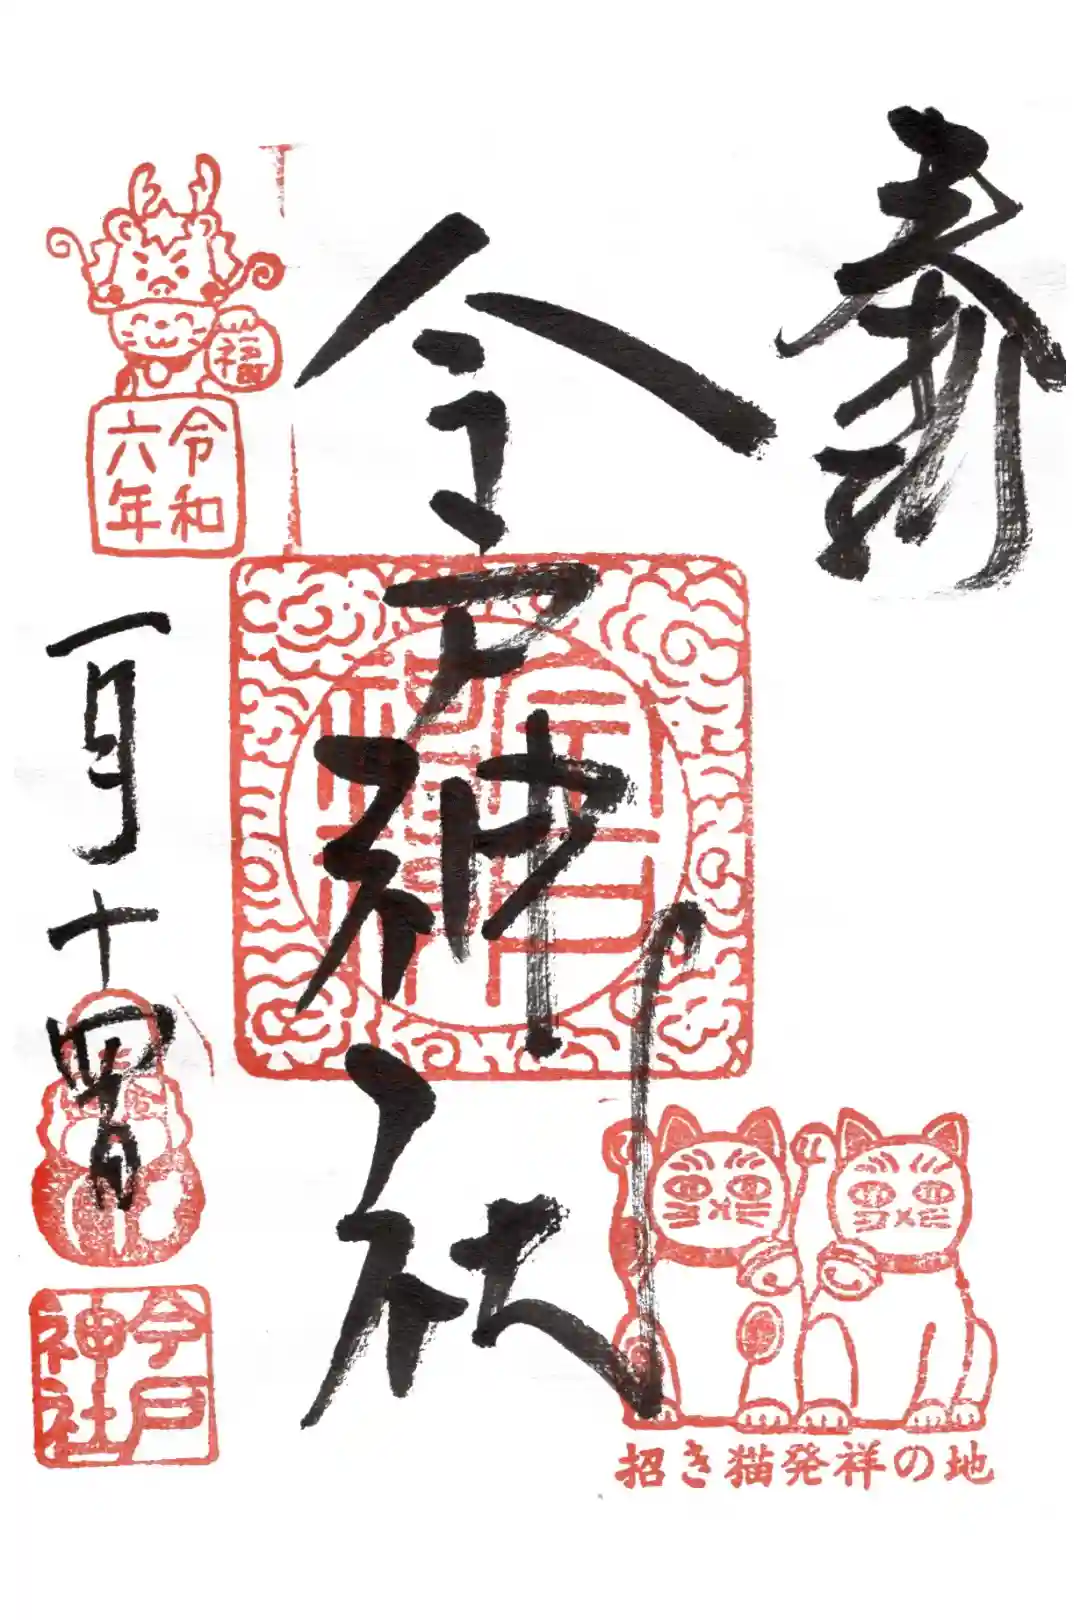 奉拝
今戸神社
招き猫発祥の地
福
令和
六年
一月十四日
今戸
神社